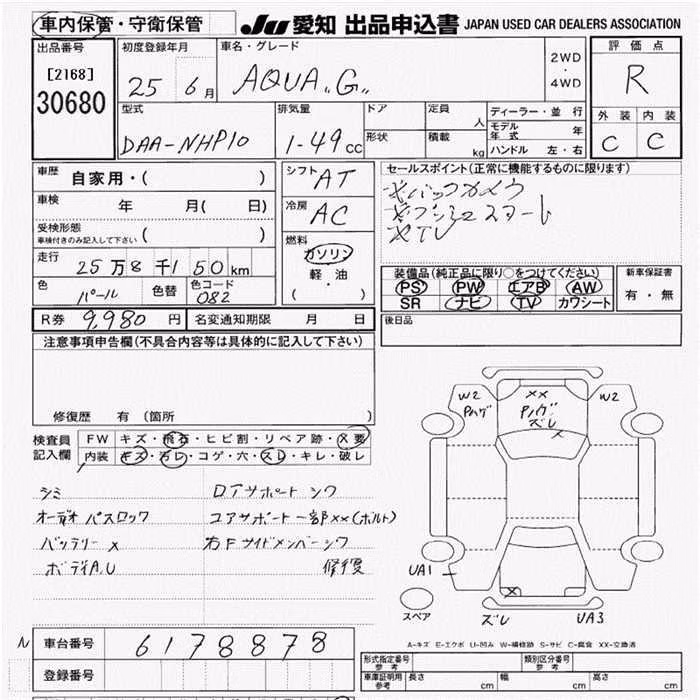 車内保管・守衛保管
JU 愛知 出品申込書 JAPAN USED CAR DEALERS ASSOCIATION
出品番号
[2168]
30680
初度登録年月
25 6月
車名・グレード
AQUA „G„
2WD
・
4WD
評価点
R
外装 内装
C C
型式
DAA-NHP10
排気量
1-49cc
ドア
形状
定員
人
積載
kg
ディーラー・並行
モデル年式 年
ハンドル 左・右
車歴
自家用・( )
車検
年 月( 日)
受検形態
車検付きのみ記入して下さい ( )
走行
25万8千150km
色
パール
色替
色コード
082
シフト
AT
冷房
AC
燃料
ガソリン
軽・油
( )
セールスポイント(正常に機能するものに限ります)
*バックカメラ
*プシュスタート
*TV
装備品(純正品に限り○をつけてください)
PS PW エアB AW
SR ナビ TV カワシート
新車保証書
有・無
後日品
R券 9,980円 名変通知期限 月 日
注意事項申告欄(不具合内容等は具体的に記入して下さい)
修復歴 有 (箇所 )
検査員
記入欄
FW キズ・飛石・ヒビ割・リペア跡・X要
内装 キズ・汚レ・コゲ・穴・スレ・キレ・破レ
シミ
オーディオパスロック
バッテリーX
ボディA,U
ロアサポートシワ
コアサポート一部XX(ボルト)
右Fサイドメンバーシワ
修復
W2
Pハゲ
XX
Pハゲ
ズレ
X
W2
UA1
X
スペア
ズレ
UA3
A-キズ E-エクボ U-凹み W-補修跡 S-サビ C-腐食 XX-交換済
N
車台番号 6178878
登録番号
形式指定番号
参考
類別区分番号
参考
車庫証明用
参考
長さ cm
幅 cm
高さ cm